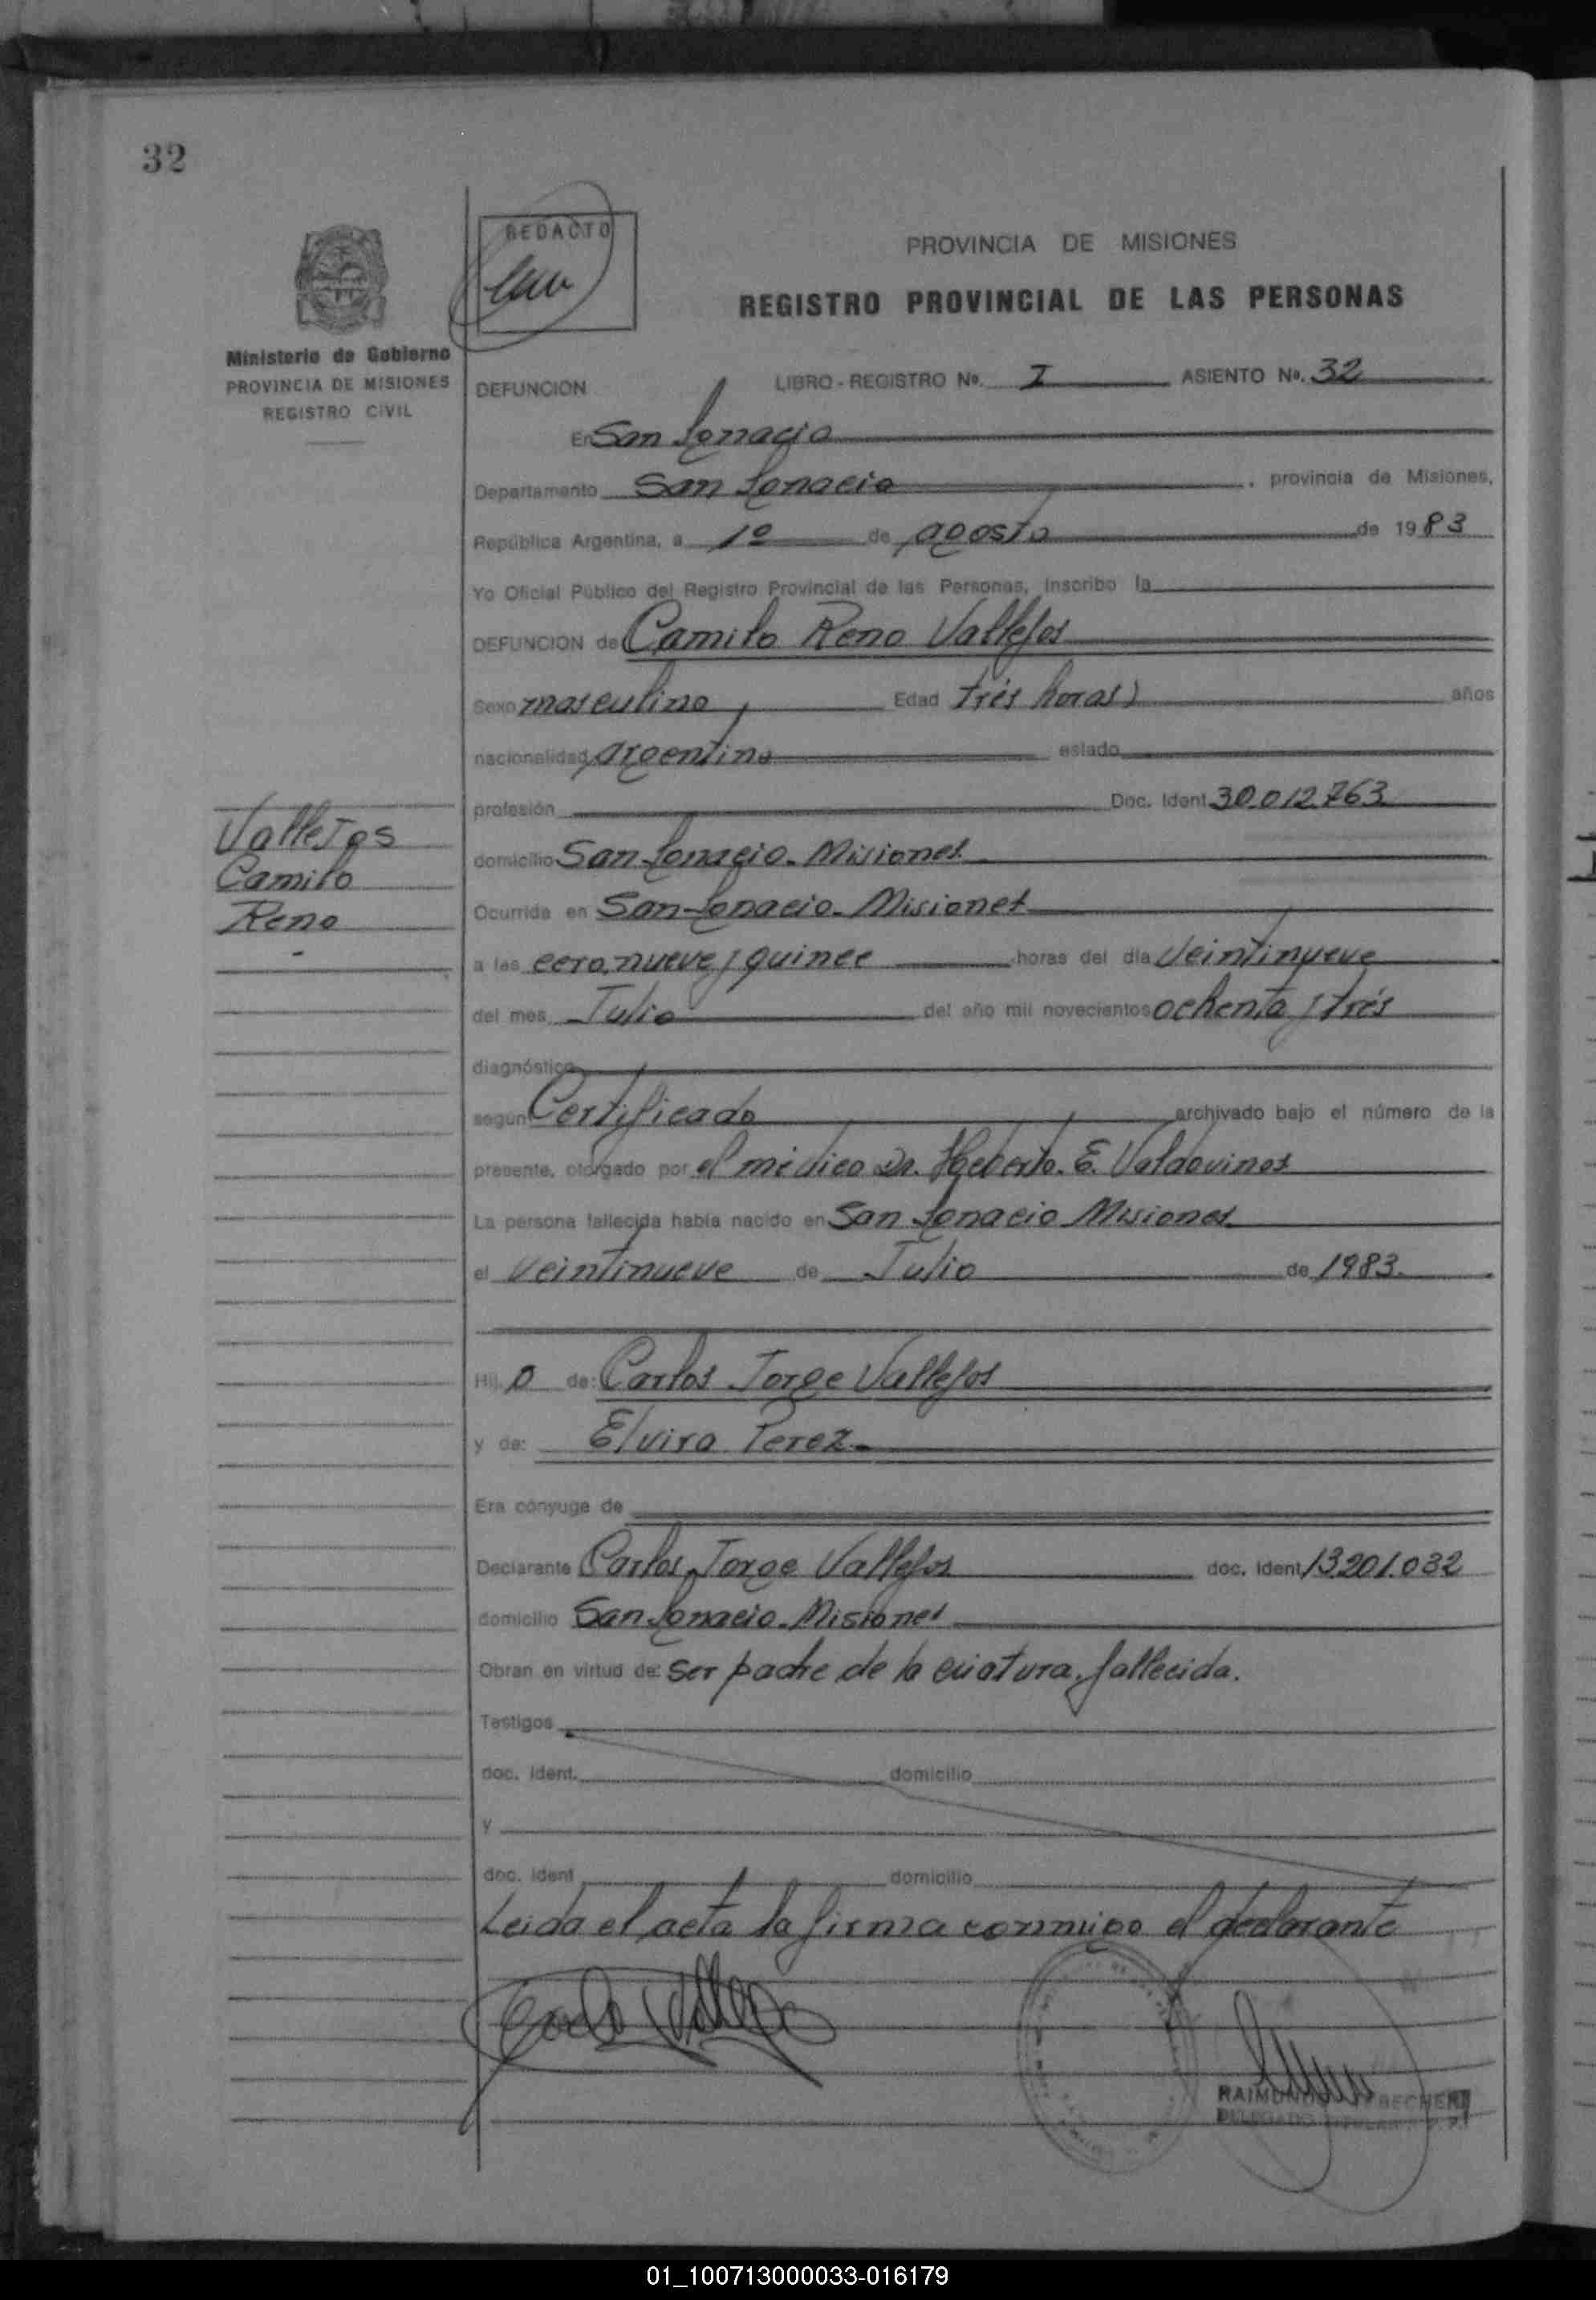 32
REDACTO
PROVINCIA DE MISIONES
REGISTRO PROVINCIAL DE LAS PERSONAS
Ministerio de Gobierno
PROVINCIA DE MISIONES
REGISTRO CIVIL
DEFUNCION LIBRO - REGISTRO No. I ASIENTO No. 32
En San Ignacio
Departamento San Ignacio, provincia de Misiones,
República Argentina, a 1º de agosto de 1983
Yo Oficial Público del Registro Provincial de las Personas, Inscribo la
DEFUNCION de Camilo Reno Vallejos
Sexo masculino, Edad trés horas) años
nacionalidad argentina estado
profesión Doc. Ident 30.012.763
domicilio San Ignacio - Misiones
Ocurrida en San Ignacio - Misiones
a las cero, nueve y quince horas del día Veintinueve
del mes Julio del año mil novecientos ochenta y trés
diagnóstico
según Certificado archivado bajo el número de la
presente, otorgado por el médico Dr. E. Valdovinos
La persona fallecida había nacido en San Ignacio Misiones
el Veintinueve de Julio de 1983.
Hij o de: Carlos Jorge Vallejos
y de: Elvira Perez
Era cónyuge de
Declarante Carlos Jorge Vallejos doc. Ident 13.201.032
domicilio San Ignacio - Misiones
Obran en virtud de: ser padre de la criatura fallecida.
Testigos
doc. Ident. domicilio
y
doc. Ident domicilio
Leida el acta la firma conmigo el declarante
Vallejos
Camilo
Reno
-
RAIMUNDO BECHER
DELEGADO TITULAR
01_100713000033-016179